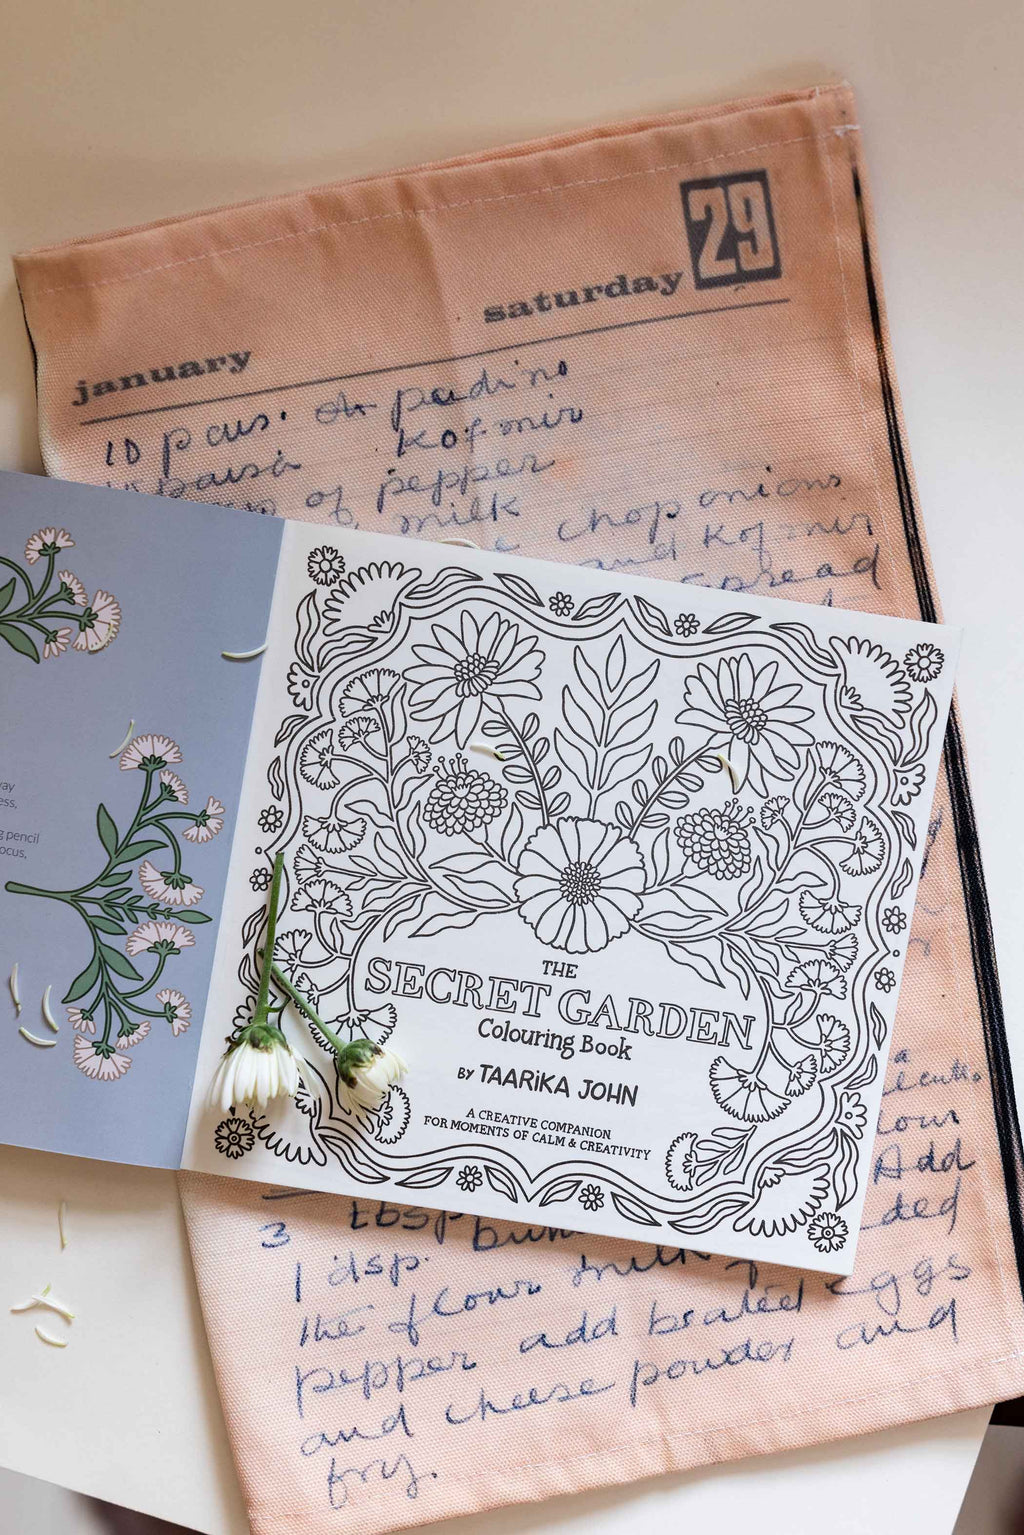 29
saturday
january
10 pcus. padino
Kofmir
of pepper
milk
chop onions
and Kofmir
spread
way
ess,
g pencil
ocus,
THE
SECRET GARDEN
Colouring Book
BY TAARIKA JOHN
A CREATIVE COMPANION
FOR MOMENTS OF CALM & CREATIVITY
a
lour
Add
3 tbsp
ded
1 dsp.
the flour milk
pepper add beated eggs
and cheese powder and
fry.